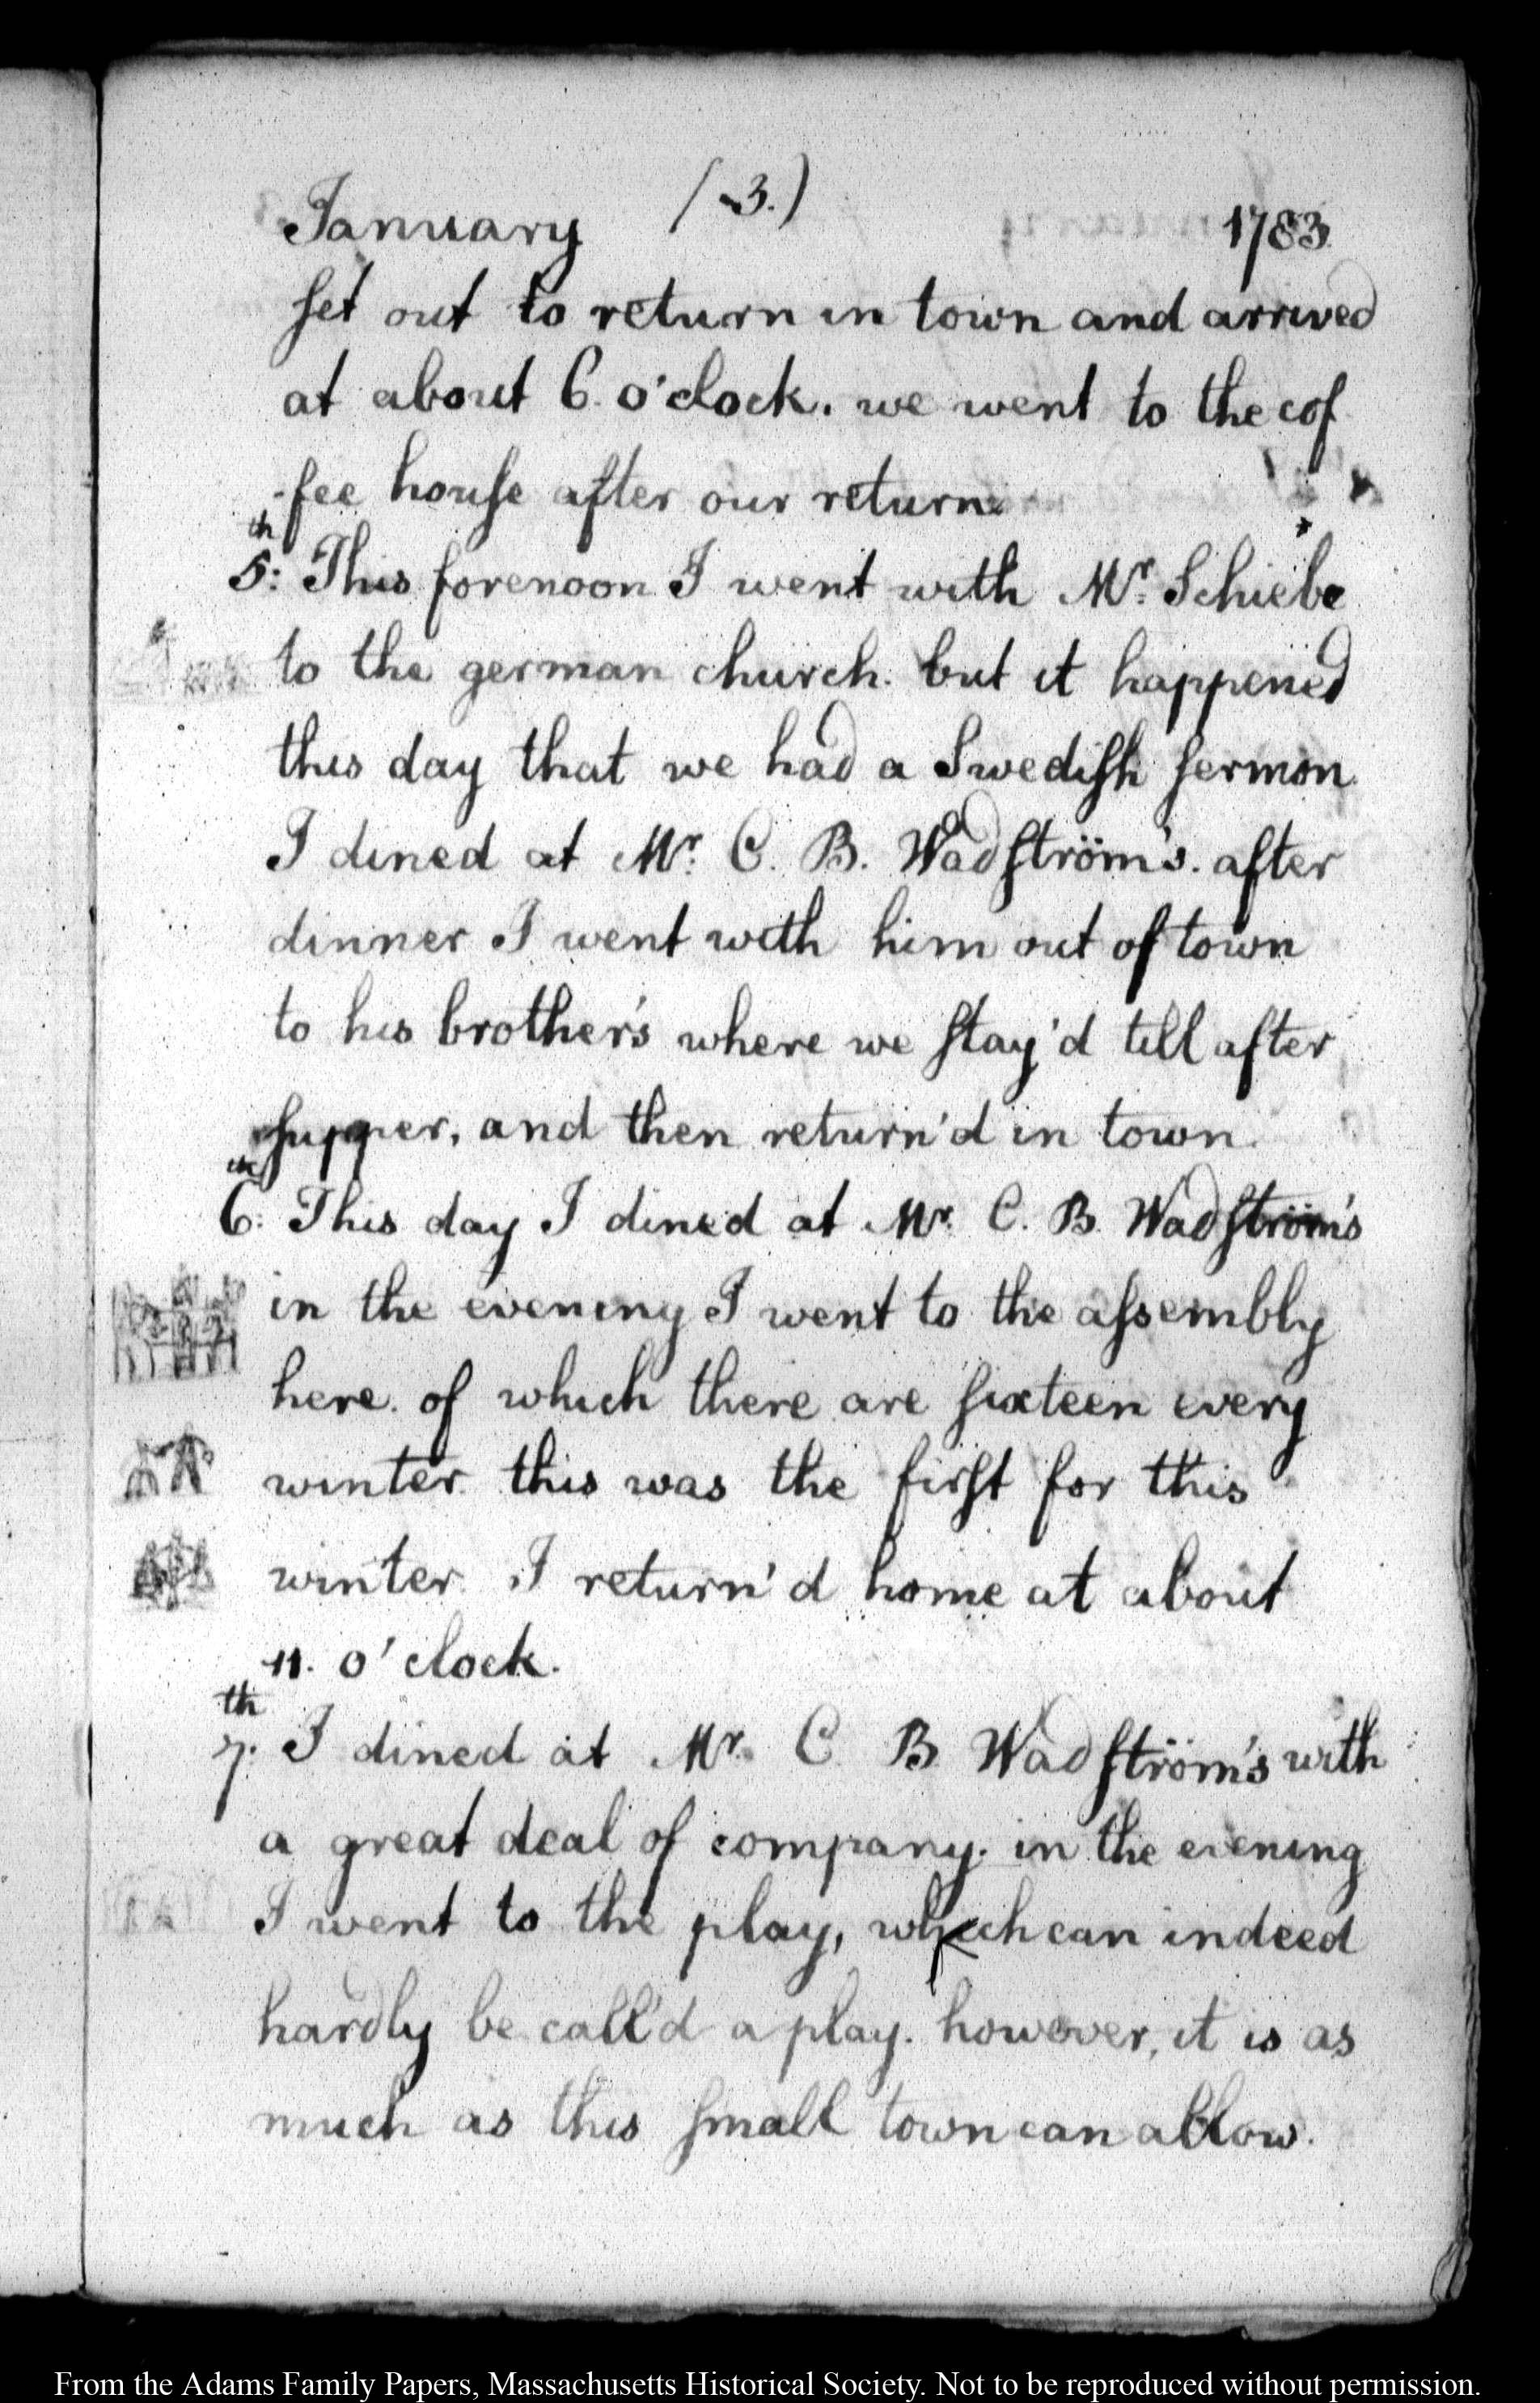 January (3.) 1783
set out to return in town and arrived
at about 6. o'clock. we went to the cof
-fee house after our return.
5:th This forenoon I went with Mr. Schiebe
to the german church. but it happened
this day that we had a Swedish sermon.
I dined at Mr. C. B. Wadström's. after
dinner I went with him out of town
to his brother's where we stay'd till after
supper, and then return'd in town.
6:th This day I dined at Mr. C. B. Wadström's
in the evening I went to the assembly
here. of which there are sixteen every
winter. this was the first for this
winter. I return'd home at about
11. o'clock.
7.th I dined at Mr. C B Wadström's with
a great deal of company. in the evening
I went to the play, which can indeed
hardly be call'd a play. however, it is as
much as this small town can allow.
From the Adams Family Papers, Massachusetts Historical Society. Not to be reproduced without permission.